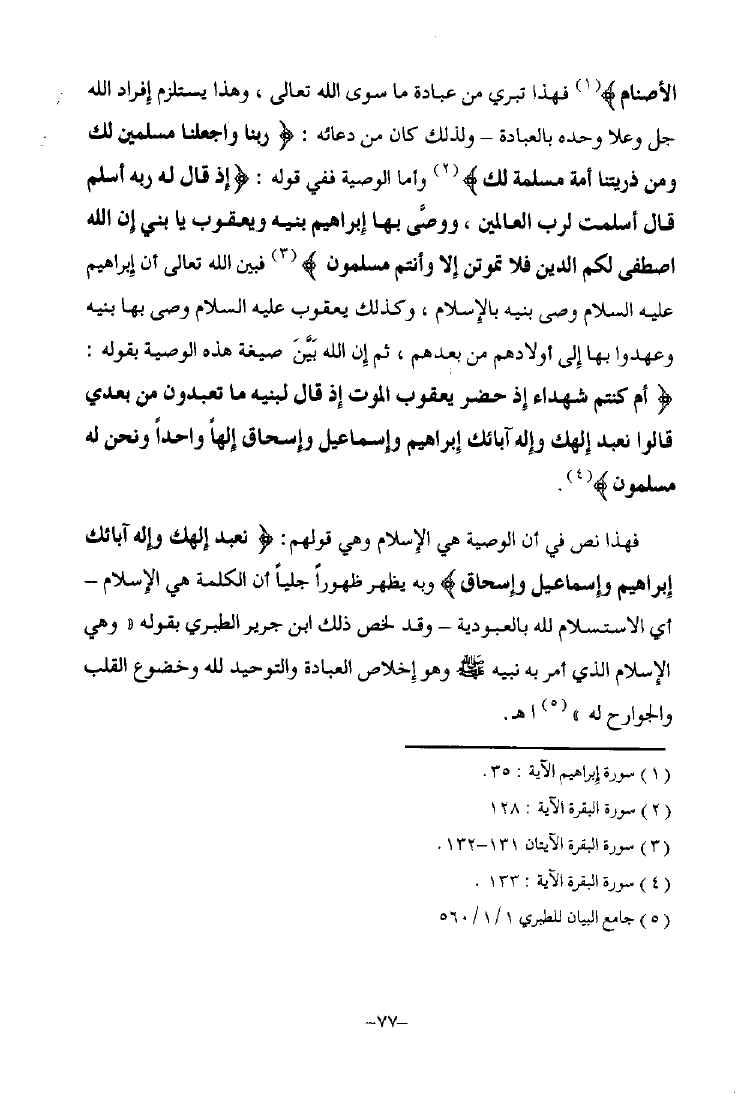 الأصنام ﴾(١) فهذا تبري من عبادة ما سوى الله تعالى ، وهذا يستلزم إفراد الله
جل وعلا وحده بالعبادة – ولذلك كان من دعائه : ﴿ ربنا واجعلنا مسلمين لك
ومن ذريتنا أمة مسلمة لك ﴾(٢) وأما الوصية ففي قوله : ﴿ إذ قال له ربه أسلم
قال أسلمت لرب العالمين ، ووصَّى بها إبراهيم بنيه ويعقوب يا بني إن الله
اصطفى لكم الدين فلا تموتن إلا وأنتم مسلمون ﴾(٣) فبين الله تعالى أن إبراهيم
عليه السلام وصى بنيه بالإسلام ، وكذلك يعقوب عليه السلام وصى بها بنيه
وعهدوا بها إلى أولادهم من بعدهم ، ثم إن الله بَيَّنَ صيغة هذه الوصية بقوله :
﴿ أم كنتم شهداء إذ حضر يعقوب الموت إذ قال لبنيه ما تعبدون من بعدي
قالوا نعبد إلهك وإله آبائك إبراهيم وإسماعيل وإسحاق إلهاً واحداً ونحن له
مسلمون ﴾(٤).
فهذا نص في أن الوصية هي الإسلام وهي قولهم: ﴿ نعبد إلهك وإله آبائك
إبراهيم وإسماعيل وإسحاق ﴾ وبه يظهر ظهوراً جلياً أن الكلمة هي الإسلام –
أي الاستسلام لله بالعبودية – وقد لخص ذلك ابن جرير الطبري بقوله « وهي
الإسلام الذي أمر به نبيه ﷺ وهو إخلاص العبادة والتوحيد لله وخضوع القلب
والجوارح له »(٥) ا هـ.
(١) سورة إبراهيم الآية : ٣٥.
(٢) سورة البقرة الآية : ١٢٨
(٣) سورة البقرة الآيتان ١٣١–١٣٢.
(٤) سورة البقرة الآية : ١٣٣ .
(٥) جامع البيان للطبري ١/ ١/ ٥٦٠
–٧٧–